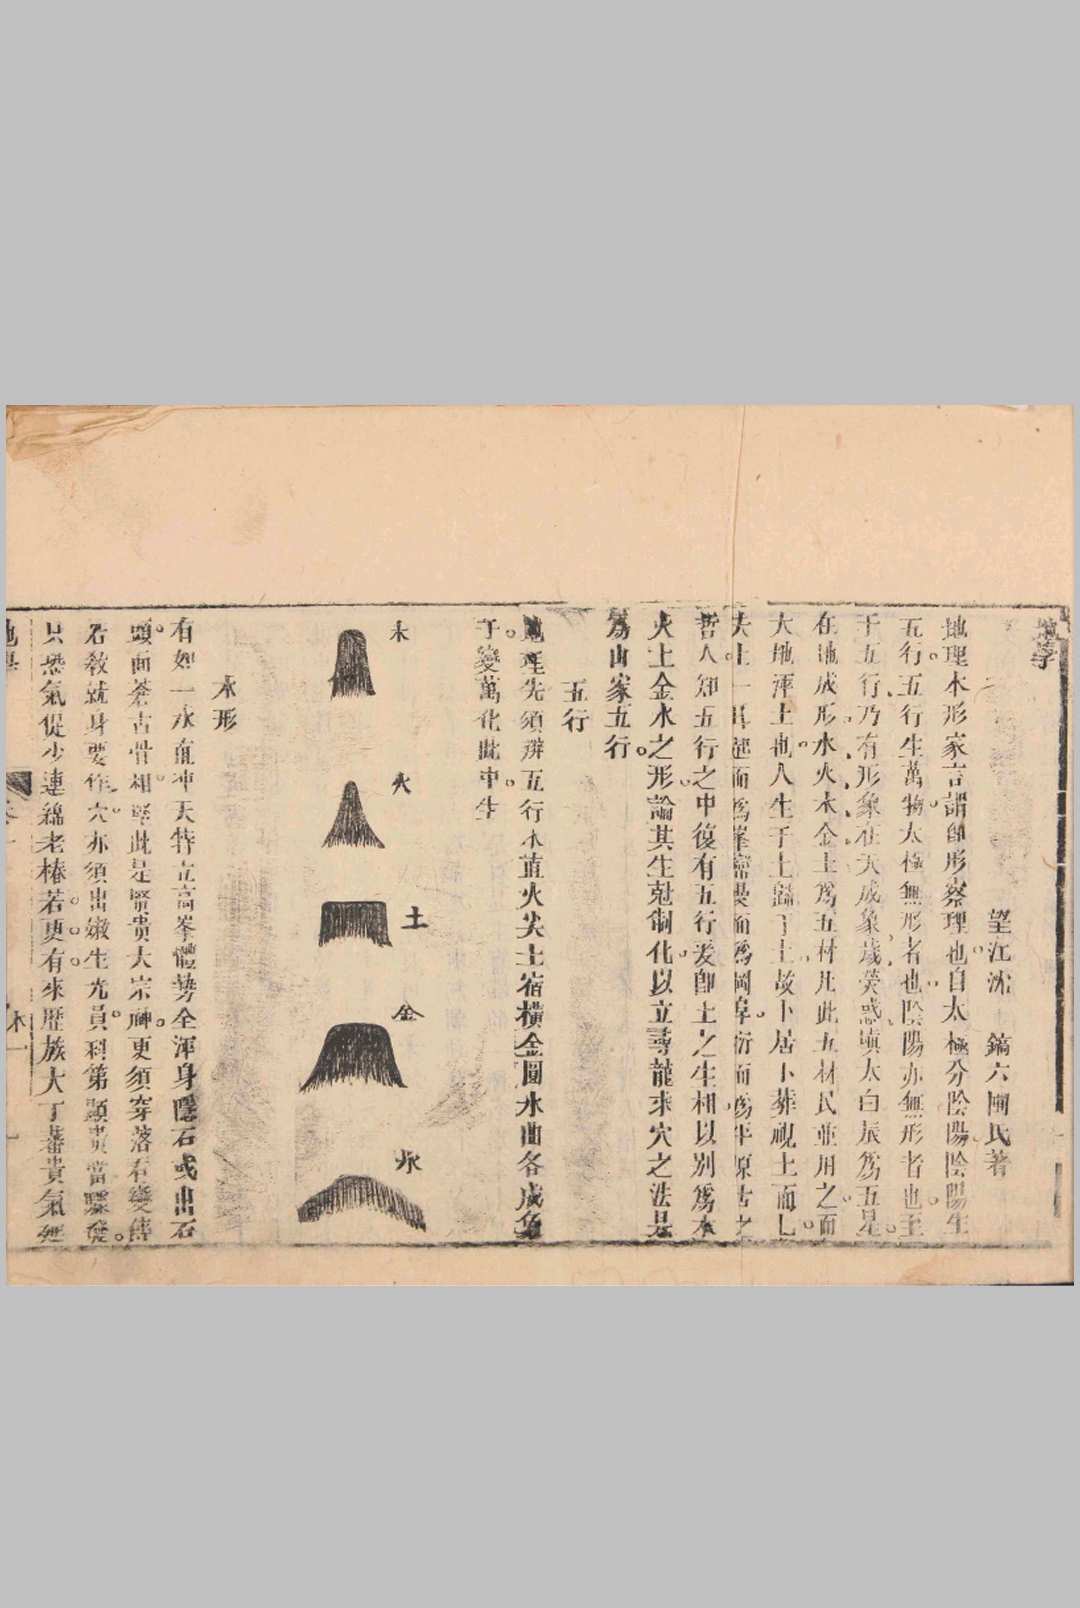 地學
望江沈 鎬六圃氏著
地理本形家言謂即形察理也自太極分陰陽陰陽生
五行五行生萬物太極無形者也陰陽亦無形者也至
于五行乃有形象在天成象歲熒惑塡太白辰爲五星
在地成形水火木金土爲五材凡此五材民並用之而
大地渾土也人生于土歸于土故卜居卜葬視土而已
夫土一耳起而爲峯巒漫而爲岡阜衍而爲平原古之
哲人知五行之中復有五行爰卽土之生相以別爲木
火土金水之形論其生尅制化以立尋龍求穴之法是
爲山家五行
五行
地理先須辨五行木直火尖土宿橫金圓水曲各成象
千變萬化此中生
木
火
土
金
水
木形
有如一木直冲天特立高峯體勢全渾身隱石或出石
頭面蒼古骨相堅此是賢貴大宗祠更須穿落看變傳
若敎就身要作穴亦須出嫩生光員科第顯貴當驟發
只恐氣促少連綿老椿若更有來歷族大丁蕃貴氣延
地學
卷一
木一